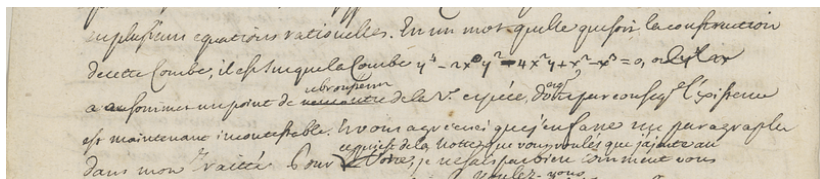 en plusieurs equations rationelles. En un mot quelle que soit la construction
de cette Courbe, il est sur que la Courbe y⁴ - 2xy² - 4x²y + x² - x³ = 0,
a au sommet un point de rebroussement rencontre de la 2e espéce, dont par conseqt l'éxistence
est maintenant incontestable. Si vous agreez que j'en fasse un paragraphe
dans mon Traité. Pour ce qui est de la Notte que vous voulés que j'ajoute au
Votre, je ne sais pas bien comment vous
voulez-vous